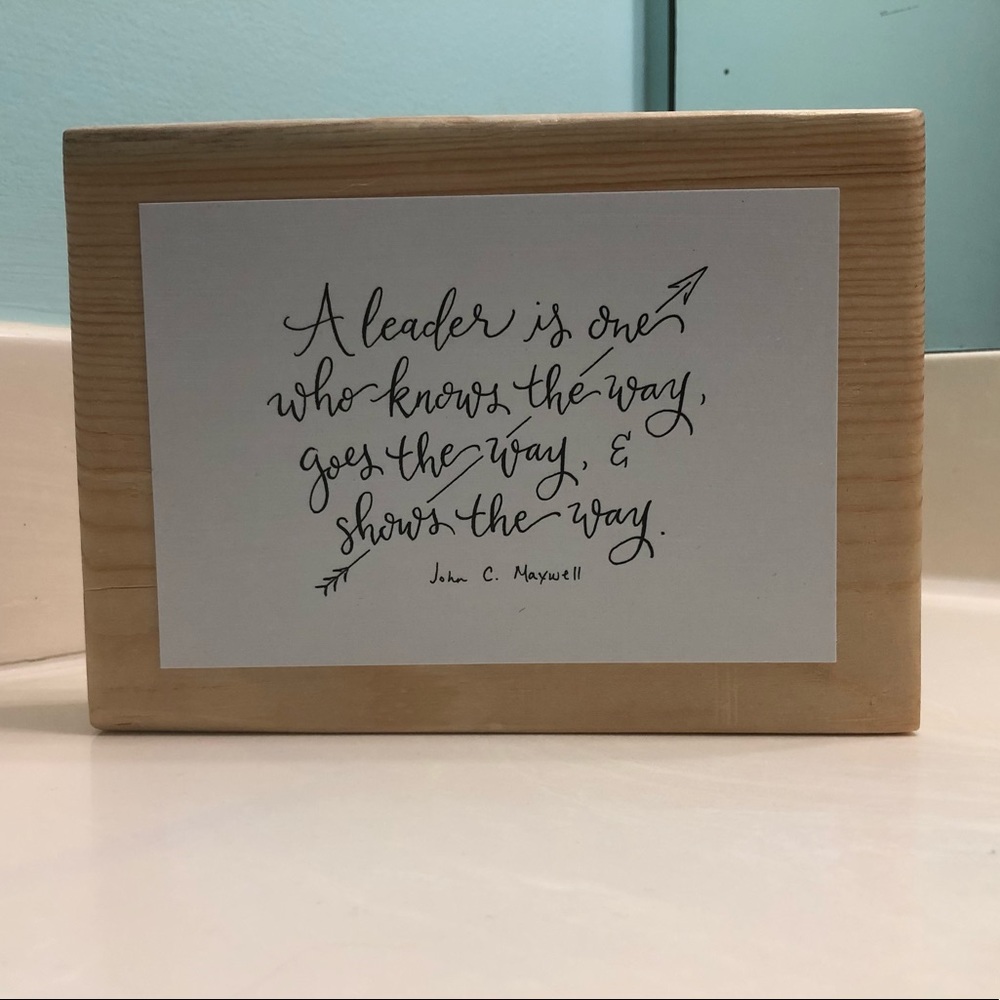 A leader is one
who knows the way,
goes the way, &
shows the way.
John C. Maxwell